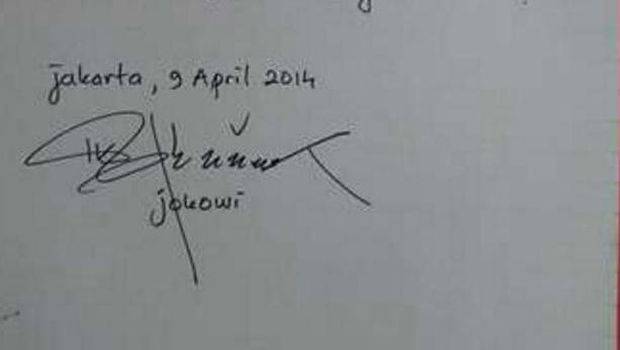 jakarta, 9 April 2014
jokowi